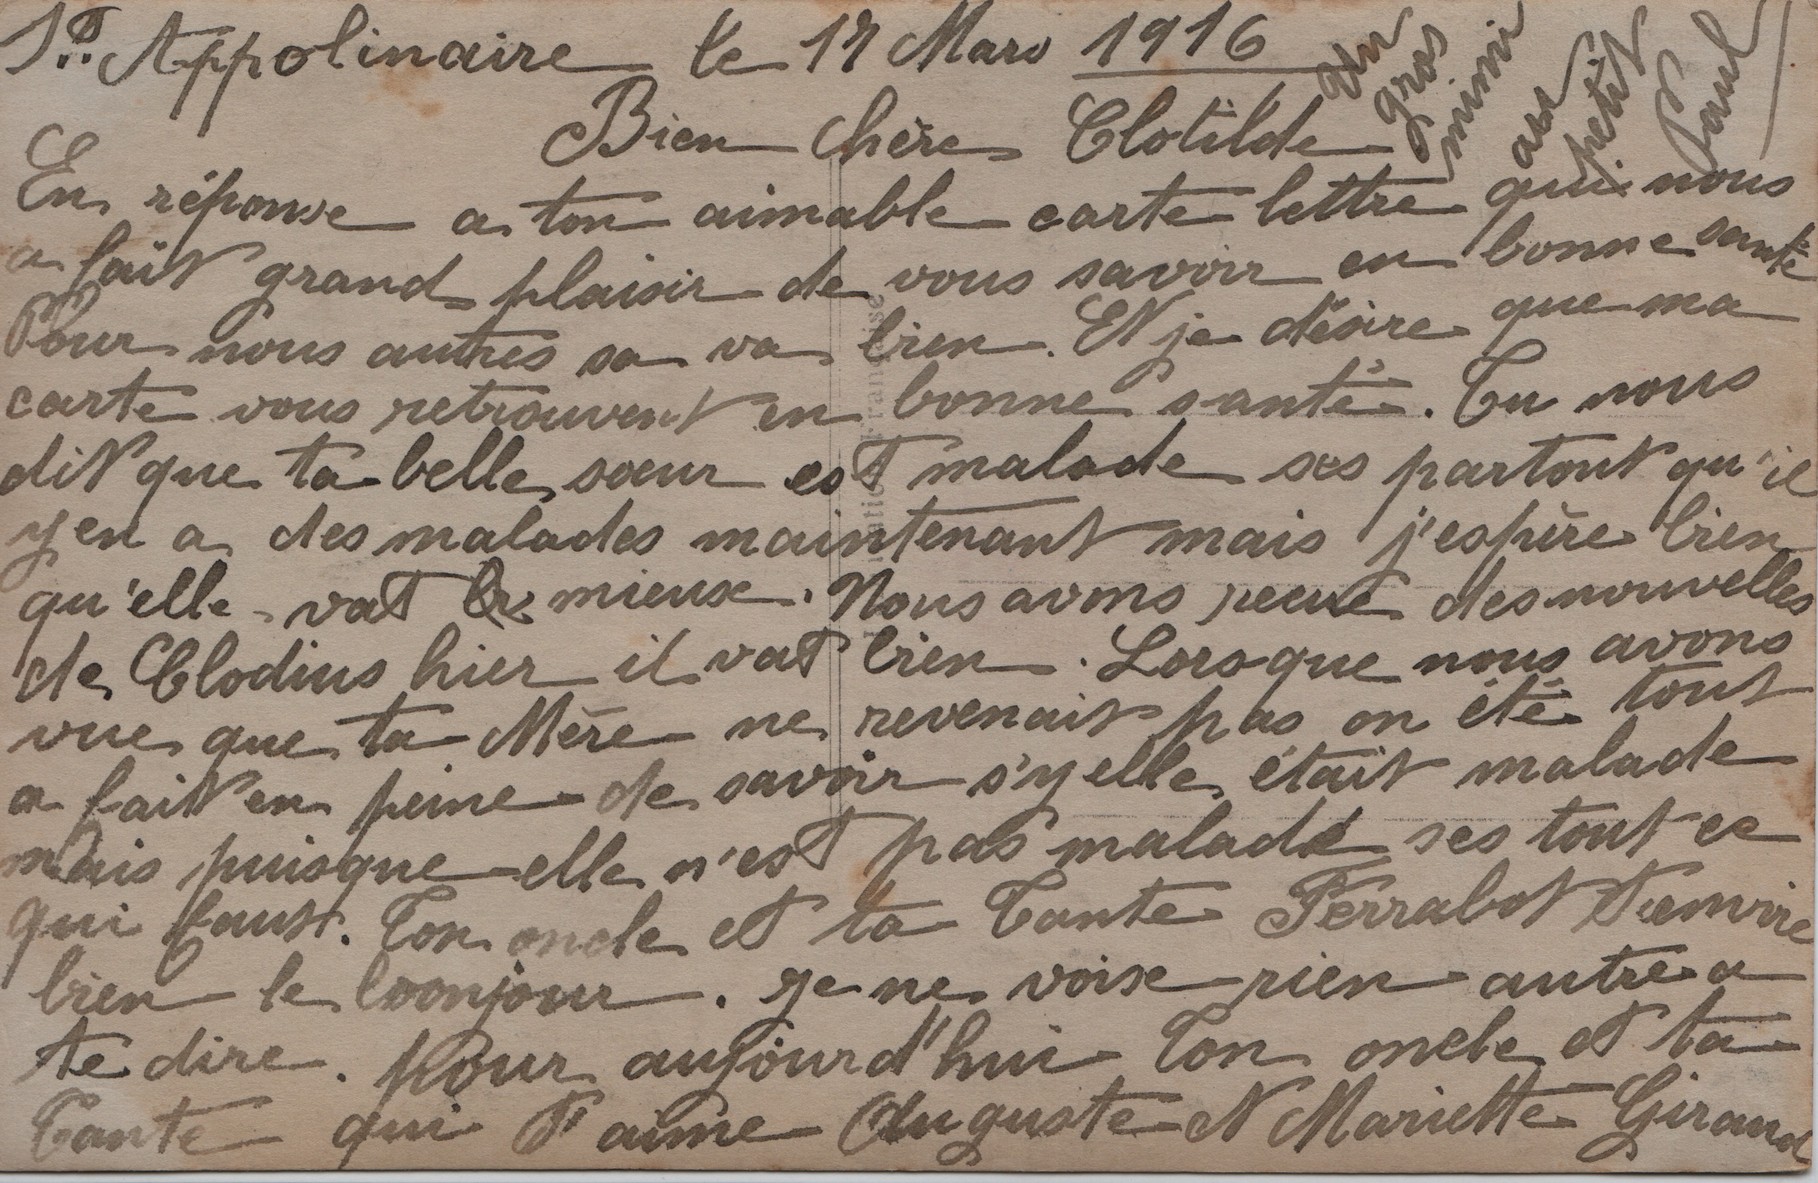 St Appolinaire le 17 Mars 1916
Un gros mimi au petit Paul
Bien chère Clotilde
En réponse a ton aimable carte lettre qui nous
a fait grand plaisir de vous savoir en bonne santé
Pour nous autres sa va bien. Et je désire que ma
carte vous retrouvent en bonne santé. Tu nous
dit que ta belle sœur est malade ses partout qu'il
y en a des malades maintenant mais j'espère bien
qu'elle vat mieux. Nous avons reçue des nouvelles
de Clodius hier il vat bien. Lorsque nous avons
vue que ta Mère ne revenait pas on été tout
a fait en peine de savoir s'y elle était malade
mais puisque elle n'est pas malade ses tout ce
qui faut. Ton oncle et ta Tante Ferrabot t'envoire
bien le bonjour. Je ne voise rien autre a
te dire. pour aujourd'hui Ton oncle et ta
Tante qui t'aime Auguste et Mariette Giraud